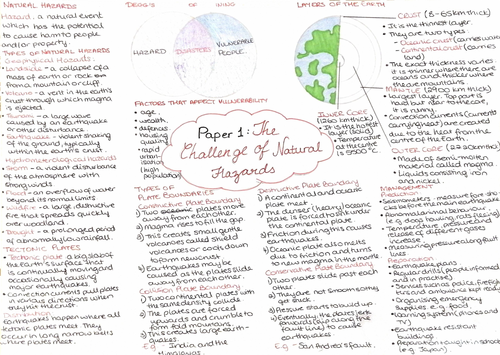 NATURAL HAZARDS
Hazard: a natural event
which has the potential
to cause harm to people
and/or property.
TYPES OF NATURAL HAZARDS
Geophysical Hazards:
Landslide - a collapse of a
mass of earth or rock from
a mountain or cliff.
Volcano - a vent in the earth's
crust through which magma
is ejected
Tsunami - a large wave
caused by an earthquake
or other disturbance.
Earthquake - violent shaking
of the ground, typically
within the earth's crust.
Hydrometeorological Hazards
Storm - a violent disturbance
of the atmosphere with
strong winds
Flood - an overflow of water
beyond its normal limits
Wildfire - a large destructive
fire that spreads quickly
over woodland.
Drought - a prolonged period
of abnormally low rainfall.
TECTONIC PLATES
Tectonic plate - a big slab of
the Earth's surface that
is continually moving and
occasionally causing
major earthquakes
Convection currents pull plates
in various directions when
they hit the crust
Distribution
Earthquakes happen where all
tectonic plates meet. They
occur in long narrow belts
where plates meet.
DEGG'S
HAZARD
DISASTERS
VULNERABLE
PEOPLE
FACTORS THAT AFFECT VULNERABILITY
age
wealth
defences
housing
quality
rapid
urban-
isation
(high
population)
Paper 1: The
Challenge of Natural
Hazards
TYPES OF
PLATE BOUNDARIES
Constructive Plate Boundary
1) Two oceanic plates move
away from each other.
2) Magma rises to fill the gap
3) This creates small, gentle
volcanoes called shield
volcanoes or cools down
to form new crust
4) Earthquakes may be
caused as the plates slide
away from each other.
Collision Plate Boundary
1) Two continental plates with
the same density collide
2) The plates are forced
upwards and crumble to
form fold mountains.
3) This creates large earth-
quakes.
E.g India and the
Himalayas
LAYERS OF THE EARTH
CRUST (8-65km thick)
It is the thinnest layer.
They are two types
Oceanic crust (carries water)
Continental crust (carries
land)
The exact thickness varies
it is thinner where there are
oceans and thicker where
there are mountains
MANTLE (2900 km thick)
Largest layer. Top part is
solid but near to the core,
it is runny.
Convection currents (current
carrying heat) are created
due to the heat from the
centre of the Earth.
OUTER CORE
Made of semi-molten
material called magma
Liquids consisting iron
and nickel.
INNER CORE
It is the hottest
layer (solid)
Temperature
at the centre
is 5500°C
Destructive Plate Boundary
1) A continental and oceanic
plate meet
2) The denser (heavy) oceanic
plate is forced to sink under
the continental plate
3) Friction during this causes
earthquakes
4) Oceanic plate also melts
due to friction and turns
to new magma in the mantle
Conservative Plate Boundary
1) Two plates slide past each
other.
2) They are not smooth so they
get stuck.
3) Pressure starts to build up
4) Eventually, the plates jerk
forward (in a long fine
fault line) to cause
earthquakes
E.g - San Andreas fault.
MANAGEMENT
Prediction
Abnormal animal behaviour
e.g. dogs howling, rats fleeing
Measuring pressure along fault
lines
Preparation
Earthquake plans
Organising emergency
supplies e.g. food
Warning system (phones and
TV)
Earthquake resistant
buildings